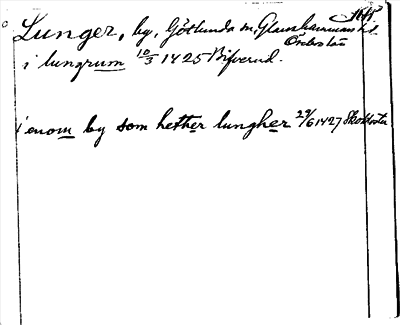 Lunger, by, Götlunda sn, Glanshammars hd.
Örebro län
i lungrum 10/3 1425 Bifverud.
i enom by som hether lungher 29/6 1427 Skokloster